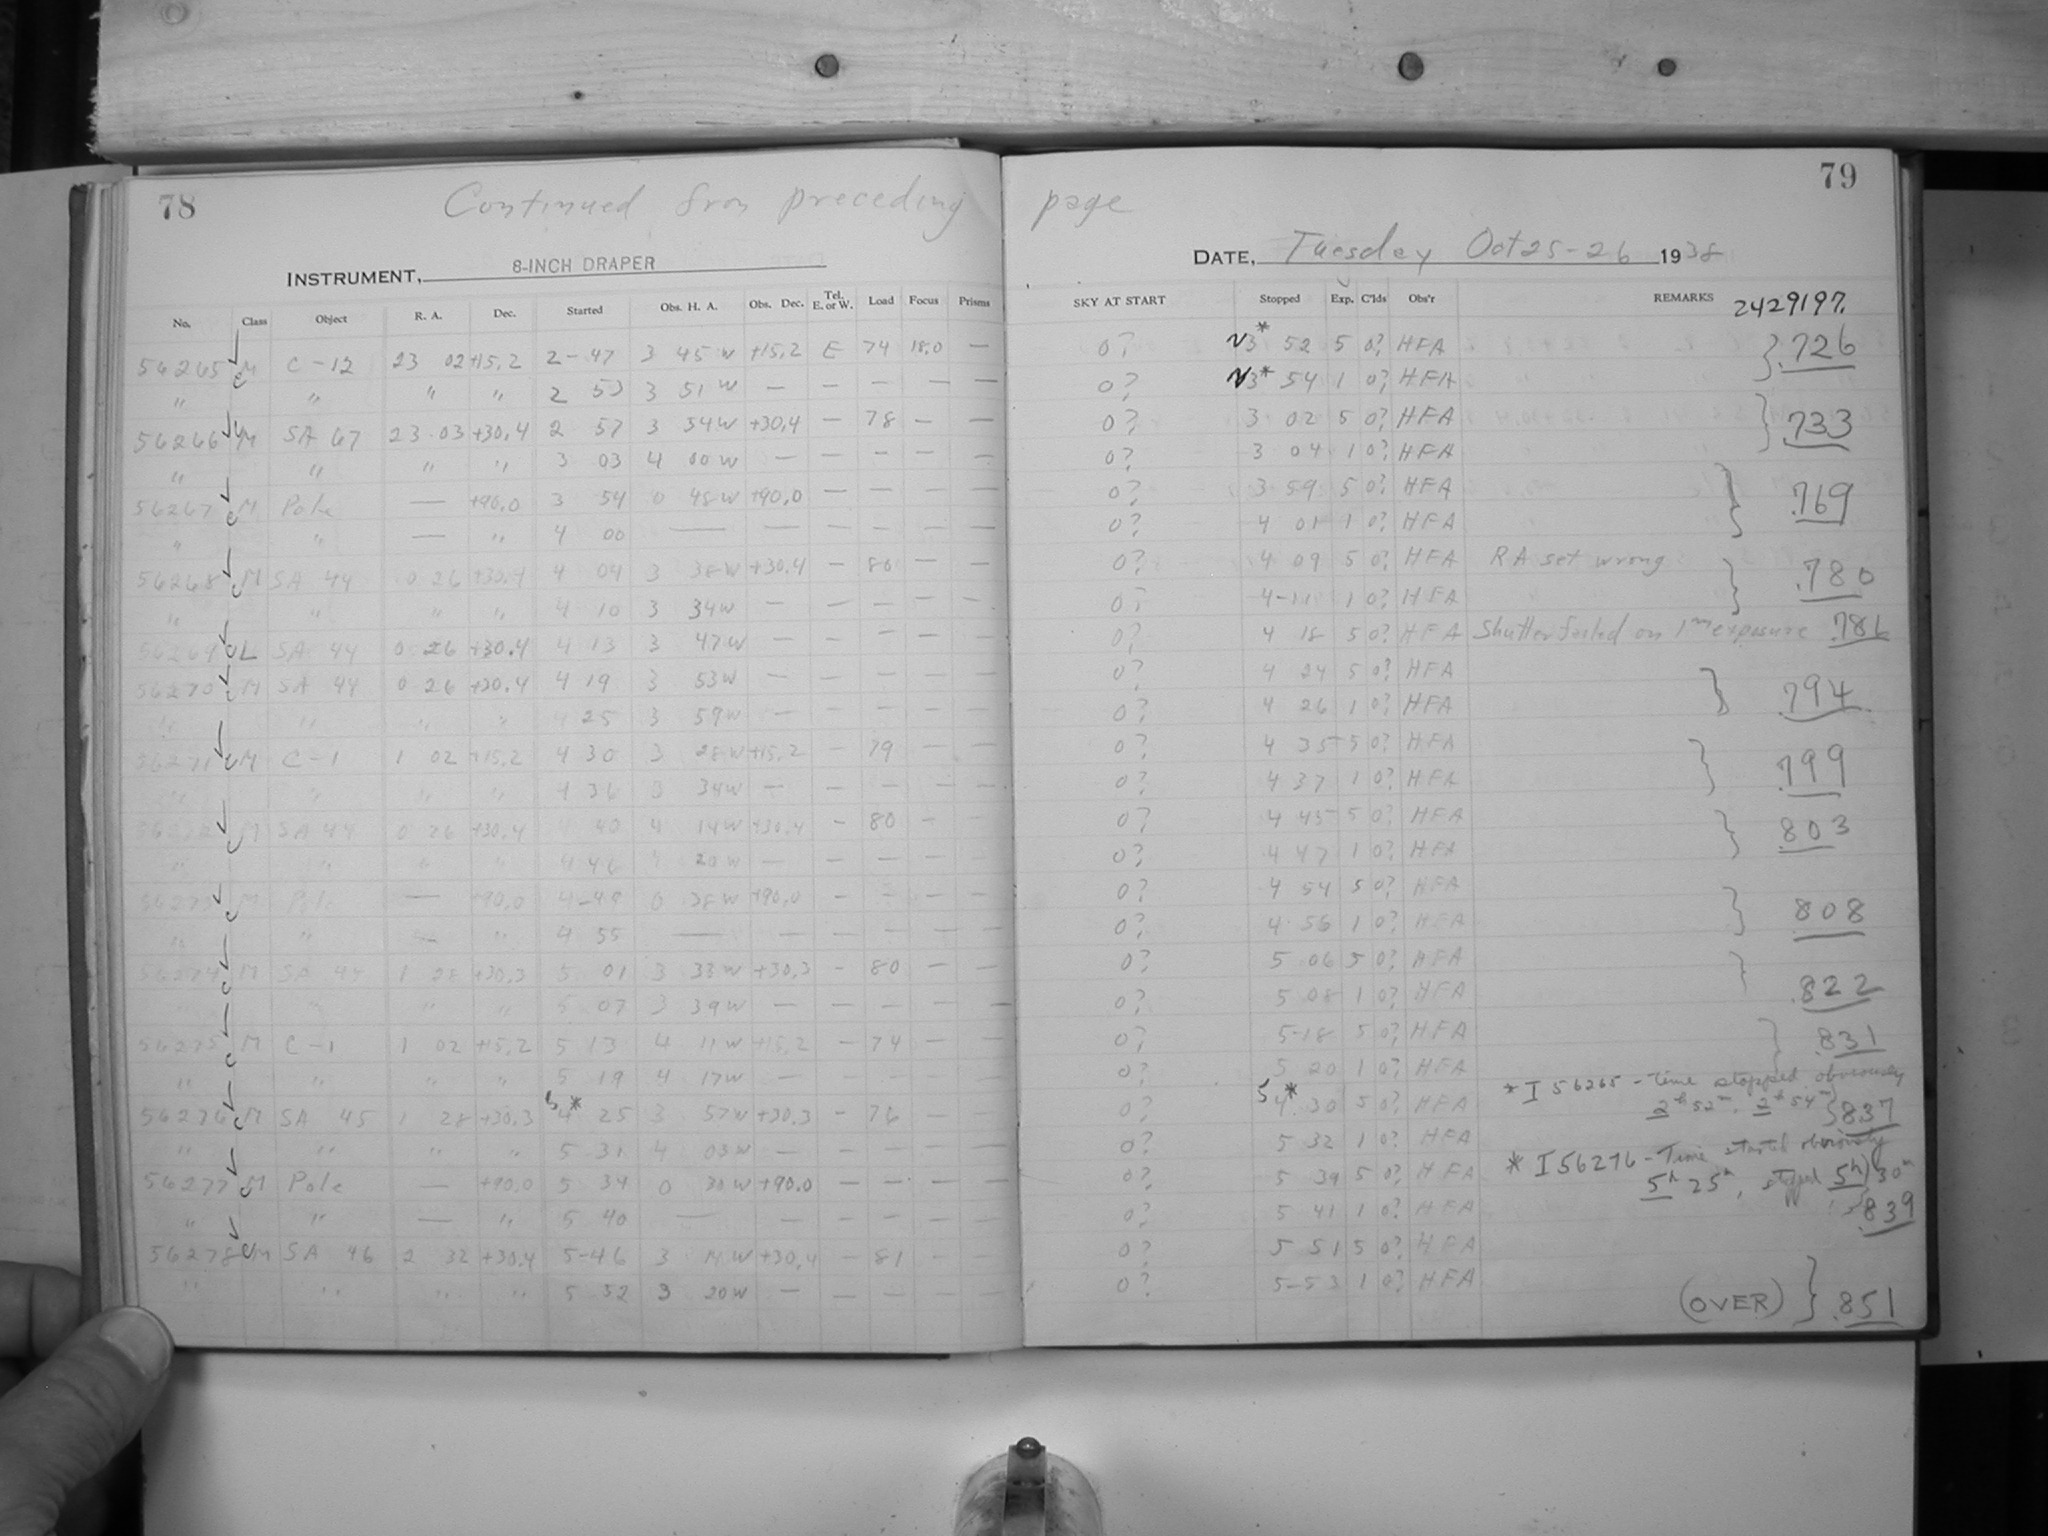 78
Continued from preceding page
79
INSTRUMENT, 8-INCH DRAPER
DATE, Tuesday Oct 25-26 1938
No. Class Object R. A. Dec. Started Obs. H. A. Obs. Dec. Tel. E. or W. Load Focus Prisms SKY AT START Stopped Exp. C'lds Obs'r REMARKS 2429197.
56265 M C-12 23 02 +15.2 2-47 3 45 W +15.2 E 74 18.0 — 0? 3* 52 5 0? HFA .726
" " " " 2 53 3 51 W — — — — — 0? 3* 54 1 0? HFA
56266 M SA 67 23 03 +30.4 2 57 3 54 W +30.4 — 78 — — 0? 3 02 5 0? HFA .733
" " " " 3 03 4 00 W — — — — — 0? 3 04 1 0? HFA
56267 M Pole — +90.0 3 54 0 48 W +90.0 — — — — 0? 3 59 5 0? HFA .769
" " — " 4 00 — — — — — — 0? 4 01 1 0? HFA
56268 M SA 44 0 26 +30.4 4 04 3 38 W +30.4 — 80 — — 0? 4 09 5 0? HFA RA set wrong .780
" " " " 4 10 3 34 W — — — — — 0? 4-11 1 0? HFA
56269 L SA 44 0 26 +30.4 4 13 3 47 W — — — — — 0? 4 18 5 0? HFA Shutter failed on 1m exposure .781
56270 M SA 44 0 26 +30.4 4 19 3 53 W — — — — — 0? 4 24 5 0? HFA .794
" " " " 4 25 3 59 W — — — — — 0? 4 26 1 0? HFA
56271 M C-1 1 02 +15.2 4 30 3 28 W +15.2 — 79 — — 0? 4 35 5 0? HFA .799
" " " " 4 36 3 34 W — — — — — 0? 4 37 1 0? HFA
56272 M SA 44 0 26 +30.4 4 40 4 14 W +30.4 — 80 — — 0? 4 45 5 0? HFA .803
" " " " 4 46 4 20 W — — — — — 0? 4 47 1 0? HFA
56273 M Pole — +90.0 4-49 0 38 W +90.0 — — — — 0? 4 54 5 0? HFA .808
" " — " 4 55 — — — — — — 0? 4 56 1 0? HFA
56274 M SA 1 28 +30.3 5 01 3 33 W +30.3 — 80 — — 0? 5 06 5 0? HFA .822
" " " " 5 07 3 39 W — — — — — 0? 5 08 1 0? HFA
56275 M C-1 1 02 +15.2 5 13 4 11 W +15.2 — 74 — — 0? 5-18 5 0? HFA .831
" " " " 5 19 4 17 W — — — — — 0? 5 20 1 0? HFA * I 56265 - Time stopped obviously
56276 M SA 45 1 28 +30.3 5* 4 25 3 57 W +30.3 — 76 — — 0? 5* 4 30 5 0? HFA 2h 52m, 2h 54m .837
" " " " 5 31 4 03 W — — — — — 0? 5 32 1 0? HFA * I 56276 - Time started obviously
56277 M Pole — +90.0 5 34 0 30 W +90.0 — — — — 0? 5 39 5 0? HFA 5h 25m, stopped 5h 30m
" " — " 5 40 — — — — — — 0? 5 41 1 0? HFA .839
56278 M SA 46 2 32 +30.4 5-46 3 14 W +30.4 — 81 — — 0? 5 51 5 0? HFA
" " " " 5 52 3 20 W — — — — — 0? 5-53 1 0? HFA (OVER) .851